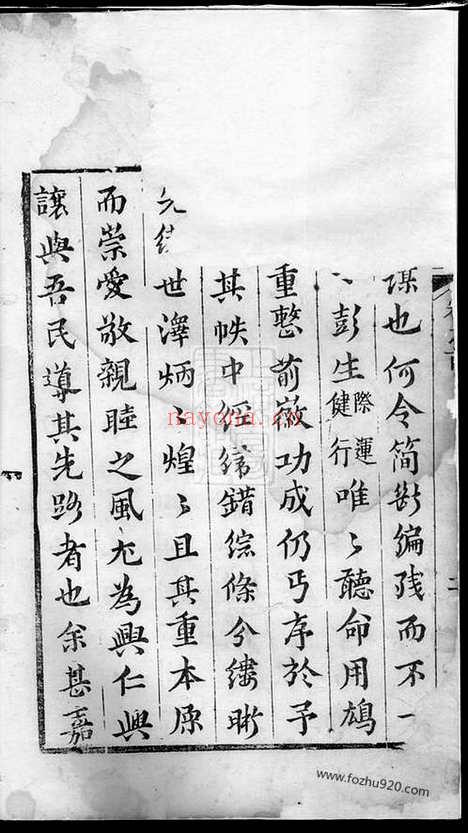 謀也何令簡斷編殘而不一
彭生際運健行唯〻聽命用鳩
重整前徽功成仍丐序於予
其帙中經緯錯綜條分縷晰
世澤炳〻煌〻且其重本原
而崇愛敬親睦之風尤為興仁興
讓與吾民導其先路者也余甚嘉
nayona.cn
www.fozhu920.com